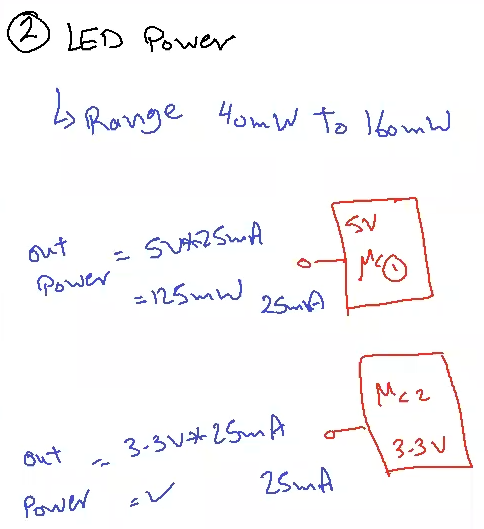 ② LED Power
↳ Range 40mW To 160mW
out Power = 5V*25mA
= 125mW
25mA
5V
Mc①
out Power = 3.3V*25mA
= ✓
25mA
Mc2
3.3V